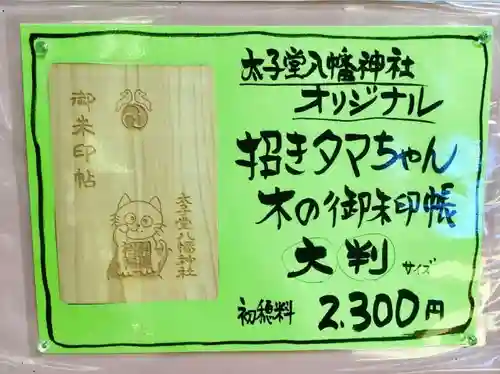 太子堂八幡神社
オリジナル
招きタマちゃん
木の御朱印帳
大判サイズ
初穂料 2,300円
御朱印帖
太子堂八幡神社